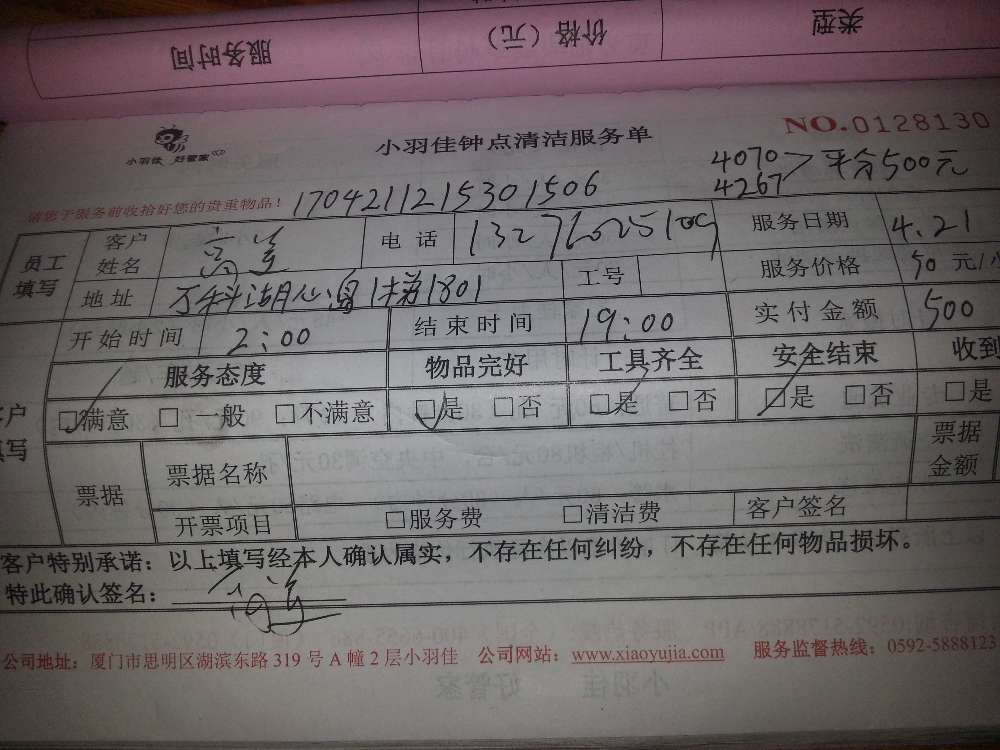 服务时间 价格（元） 类型
小羽佳 好管家
小羽佳钟点清洁服务单
NO.0128130
4070
4267 > 平分500元
请您于服务前收拾好您的贵重物品！ 1704211215301506
员工填写 客户姓名 电话 服务日期 4.21
地址 万科湖心岛 1801 工号 服务价格 50 元/小
开始时间 2:00 结束时间 19:00 实付金额 500
服务态度 物品完好 工具齐全 安全结束 收到
☑满意 □一般 □不满意 ☑是 □否 ☑是 □否 ☑是 □否 □是
票据 票据名称 票据金额
开票项目 □服务费 □清洁费 客户签名
客户特别承诺：以上填写经本人确认属实，不存在任何纠纷，不存在任何物品损坏。
特此确认签名：
公司地址：厦门市思明区湖滨东路 319 号 A 幢 2 层小羽佳 公司网站：www.xiaoyujia.com 服务监督热线：0592-5888123